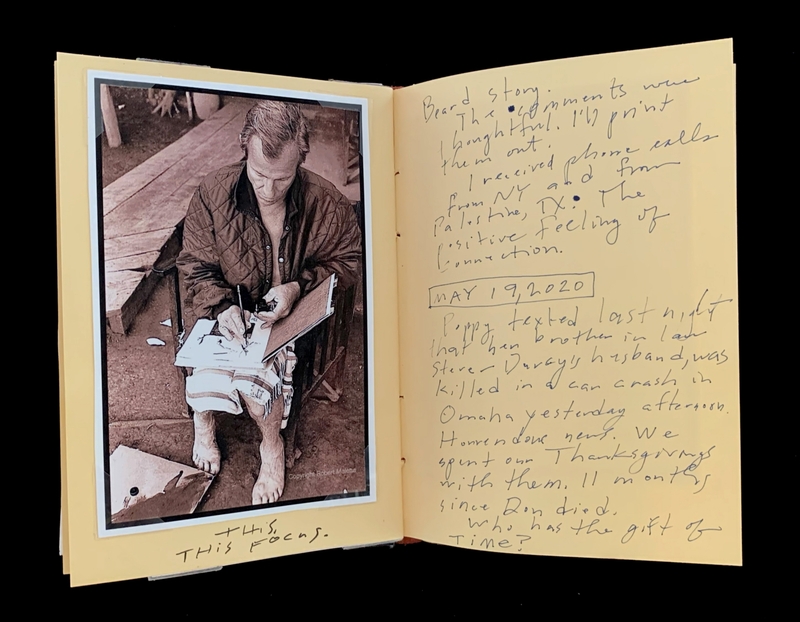 Copyright Robert M
THIS.
THIS FOCUS.
Beard story.
The comments were
thoughtful. I'll print
them out.
I received phone calls
from NY and from
Palestine, TX. The
positive feeling of
connection.
MAY 19, 2020
Poppy texted last night
that her brother in law
Steve husband, was
killed in a car crash in
Omaha yesterday afternoon.
Horrendous news. We
spent our Thanksgivings
with them. 11 months
since Don died.
Who has the gift of
Time?